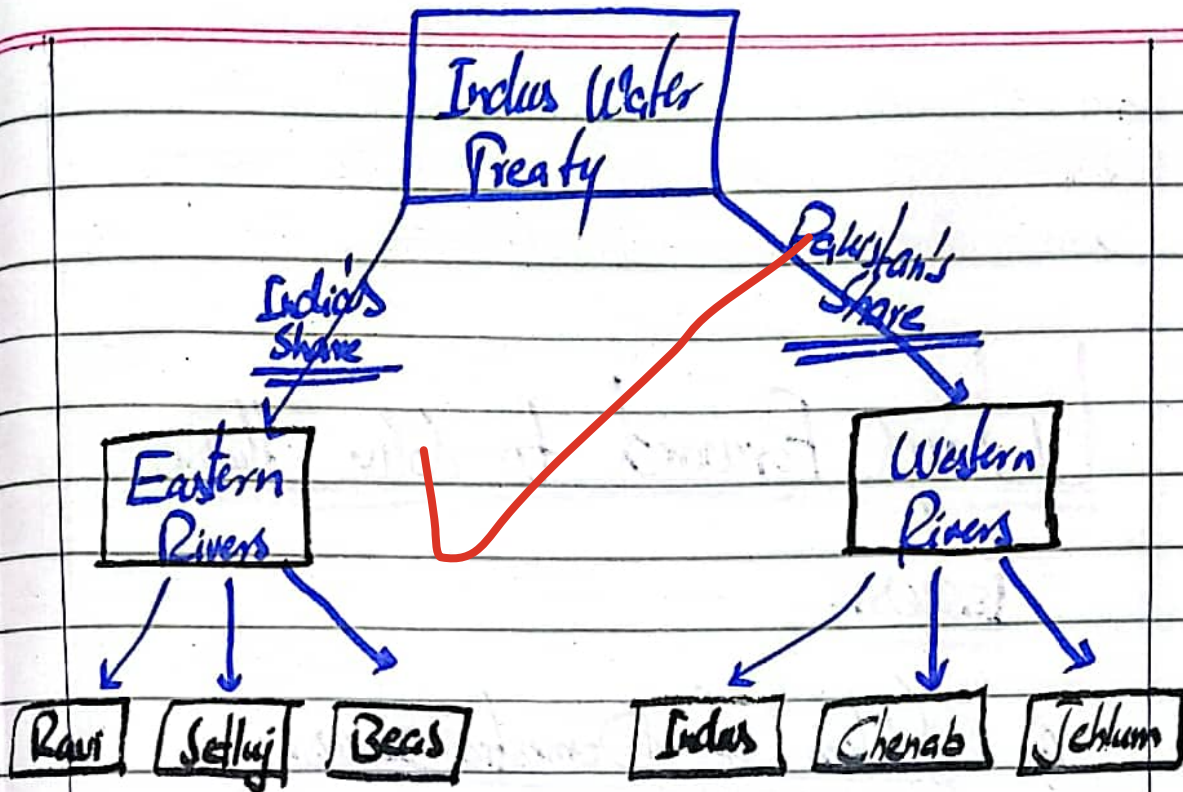 Indus Water
Treaty
India's
Share
Pakistan's
Share
Eastern
Rivers
Western
Rivers
Ravi
Setluj
Beas
Indus
Chenab
Jehlum